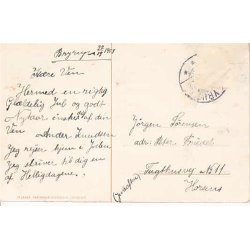 Bryrup 22/12 1918
Kære Ven
Hermed en rigtig
Glædelig Jul og godt
Nytaar ønskes af din
Ven Ander Knudsen
Jeg rejser hjem i Julen
Jeg skriver til dig en
af Helligdagene.
Jörgen Sörensen
adr. Peter
Tugthusvej No 11
Horsens